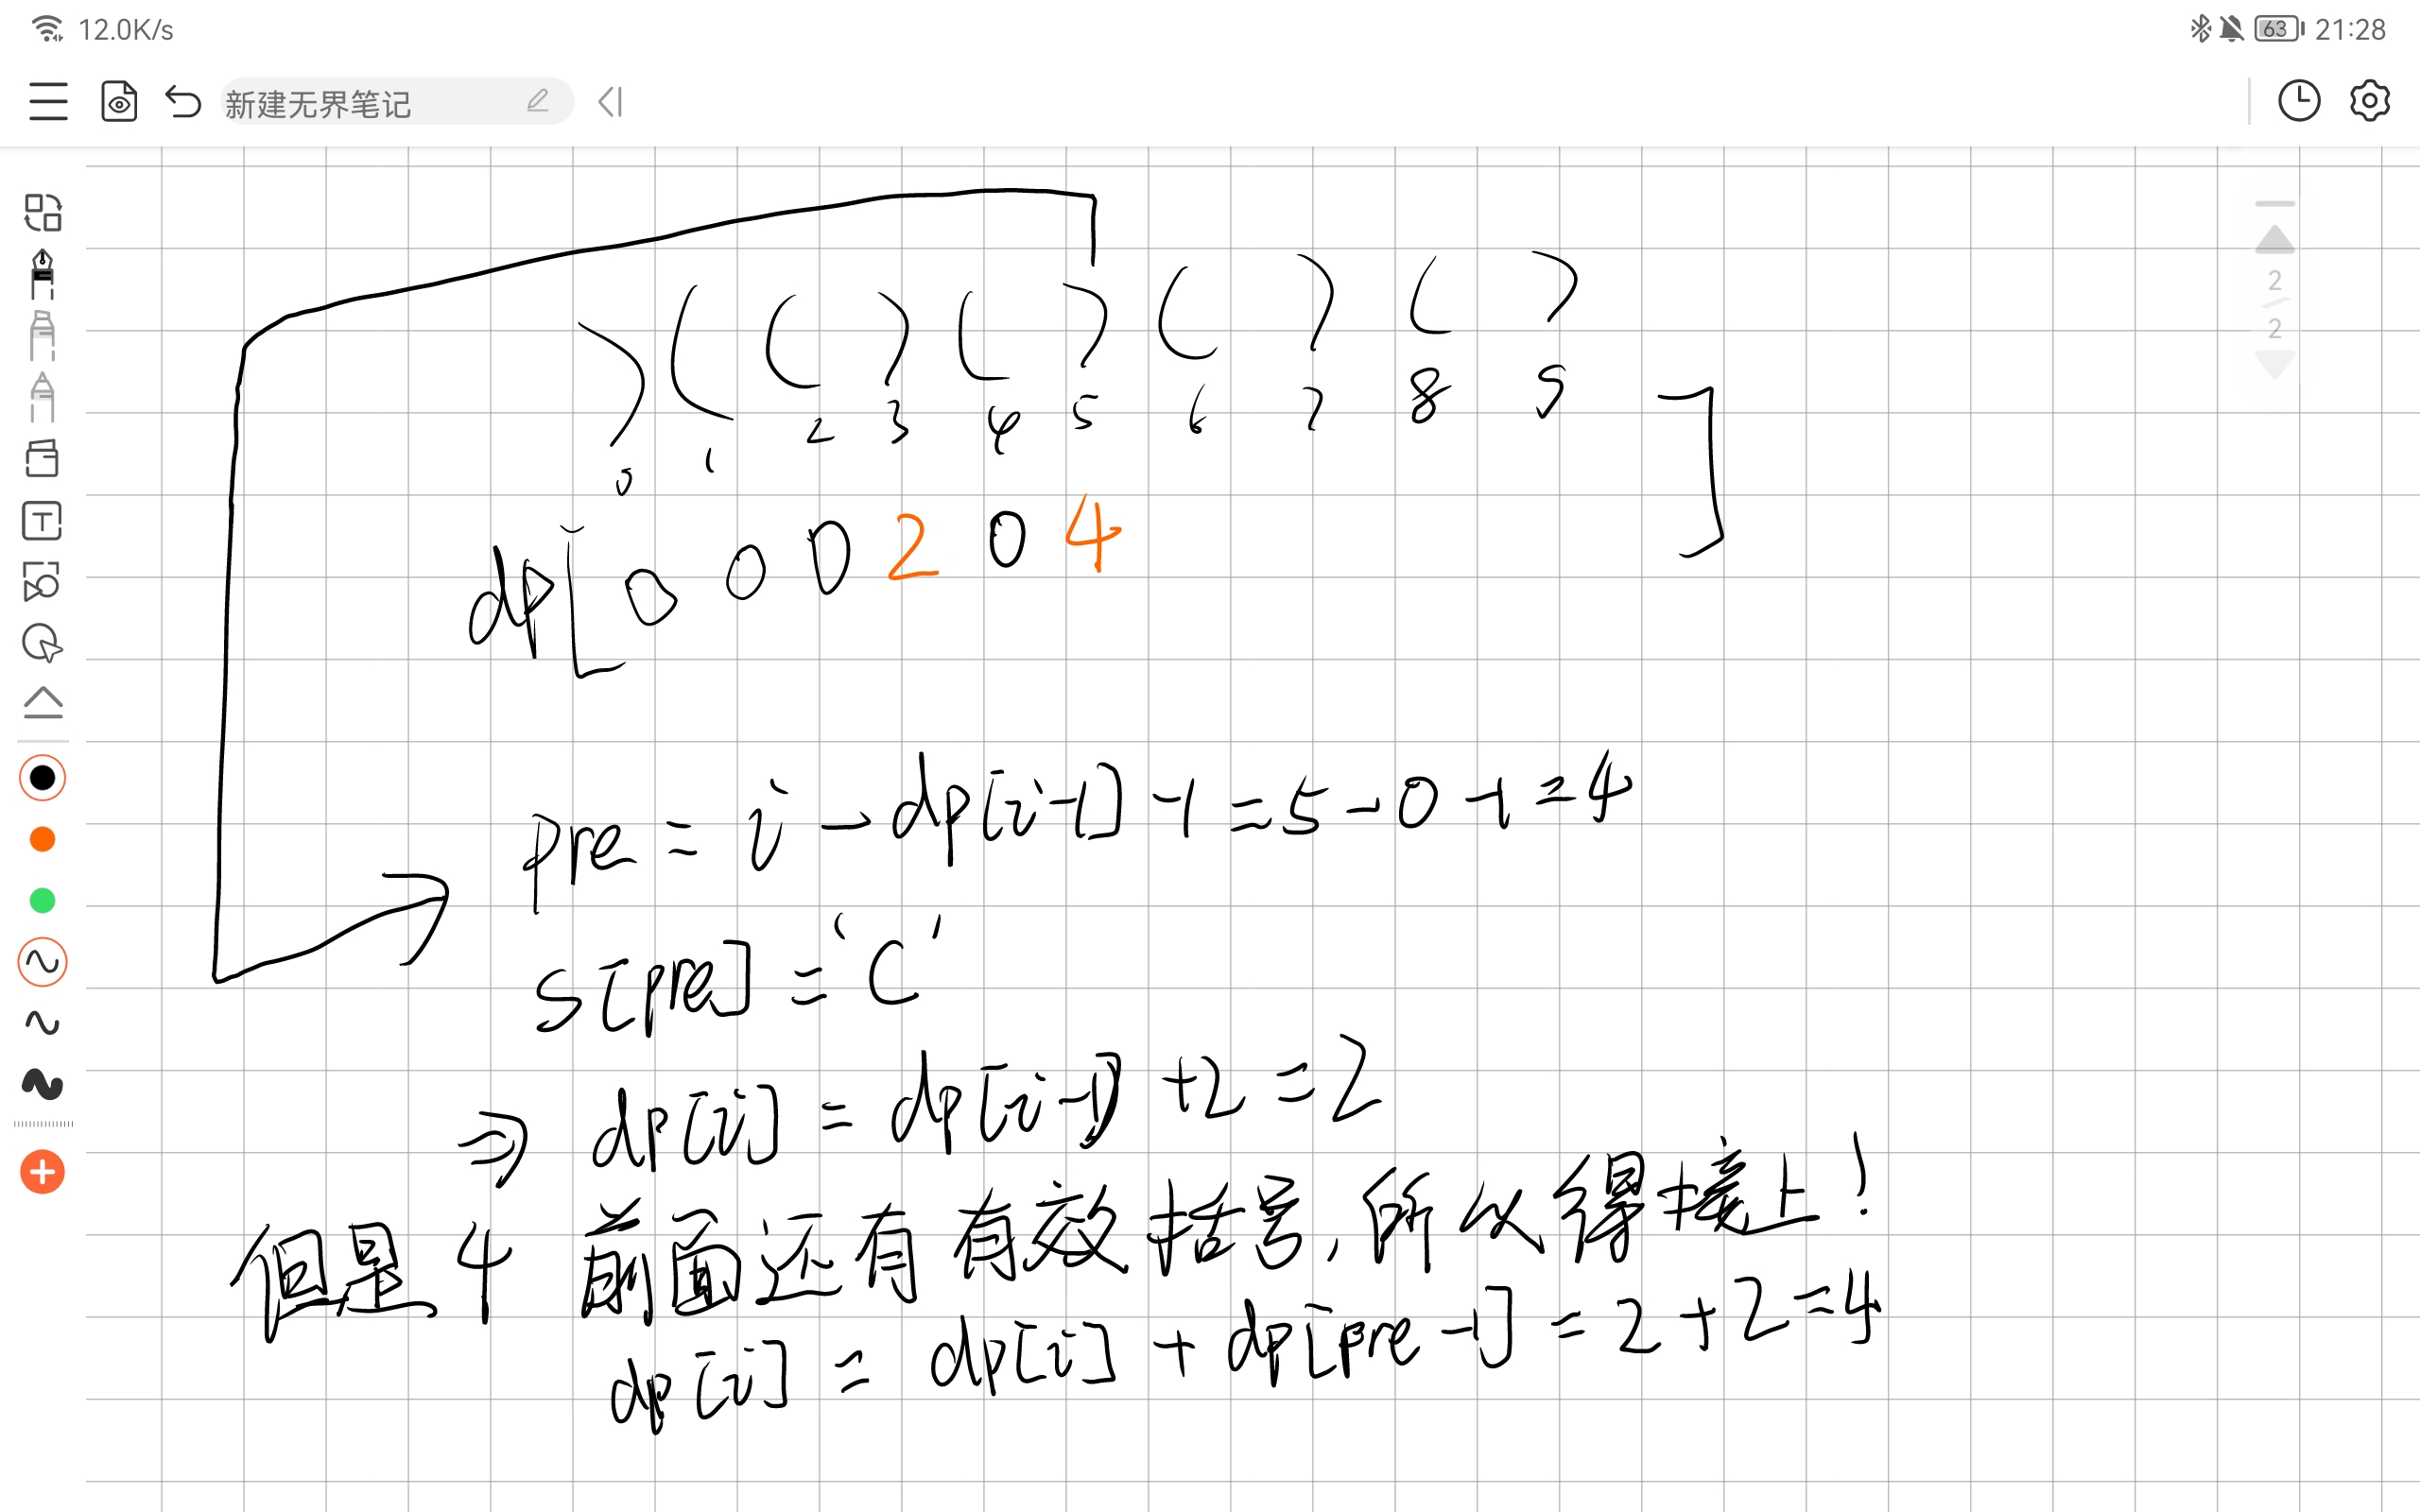 12.0K/s
63 21:28
新建无界笔记
) ( ( ) ( ) ( ) ( )
0 1 2 3 4 5 6 7 8 9
dp[ 0 0 0 2 0 4 ]
2
2
pre = i - dp[i-1] - 1 = 5 - 0 - 1 = 4
s[pre] = '('
⇒ dp[i] = dp[i-1] + 2 = 2
但是 4 前面还有有效括号,所以得接上!
dp[i] = dp[i] + dp[pre-1] = 2 + 2 = 4